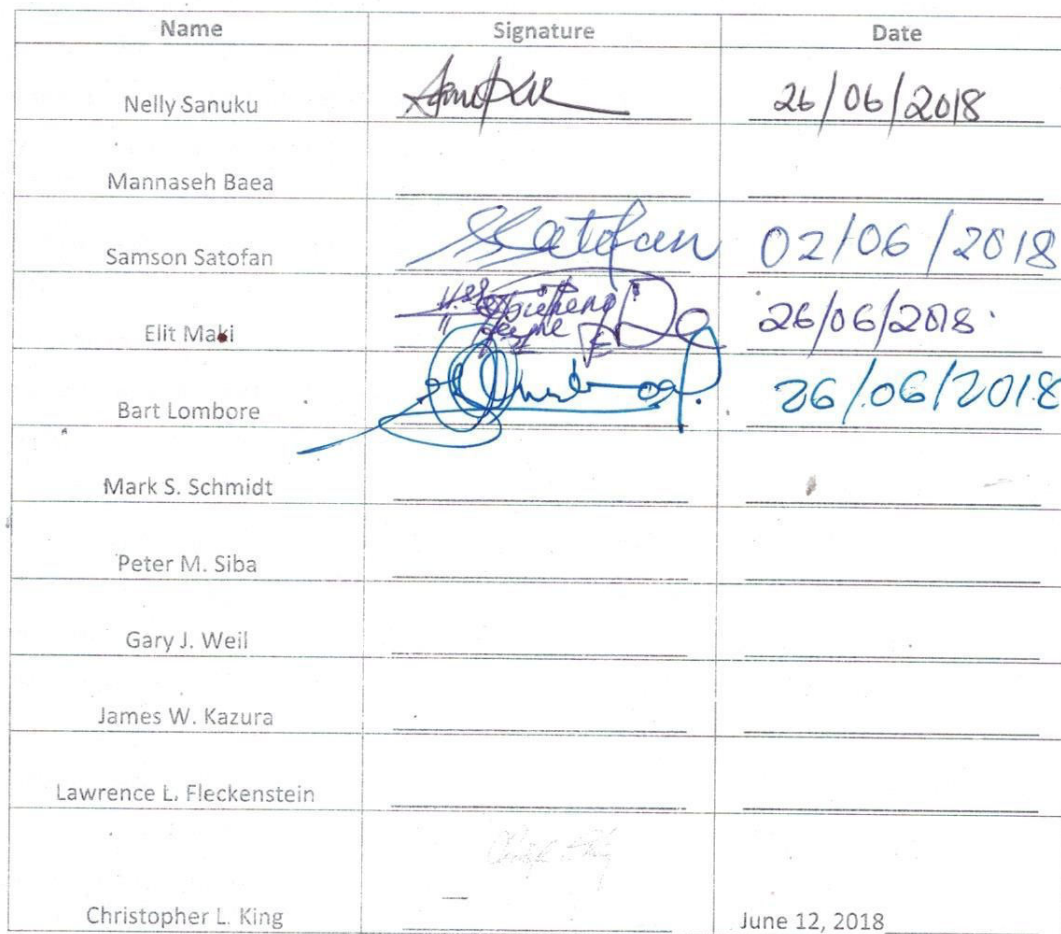 Name Signature Date
Nelly Sanuku 26/06/2018
Mannaseh Baea
Samson Satofan SSatofan 02/06/2018
Elit Maki 26/06/2018
Bart Lombore 26/06/2018
Mark S. Schmidt
Peter M. Siba
Gary J. Weil
James W. Kazura
Lawrence L. Fleckenstein
Christopher L. King June 12, 2018